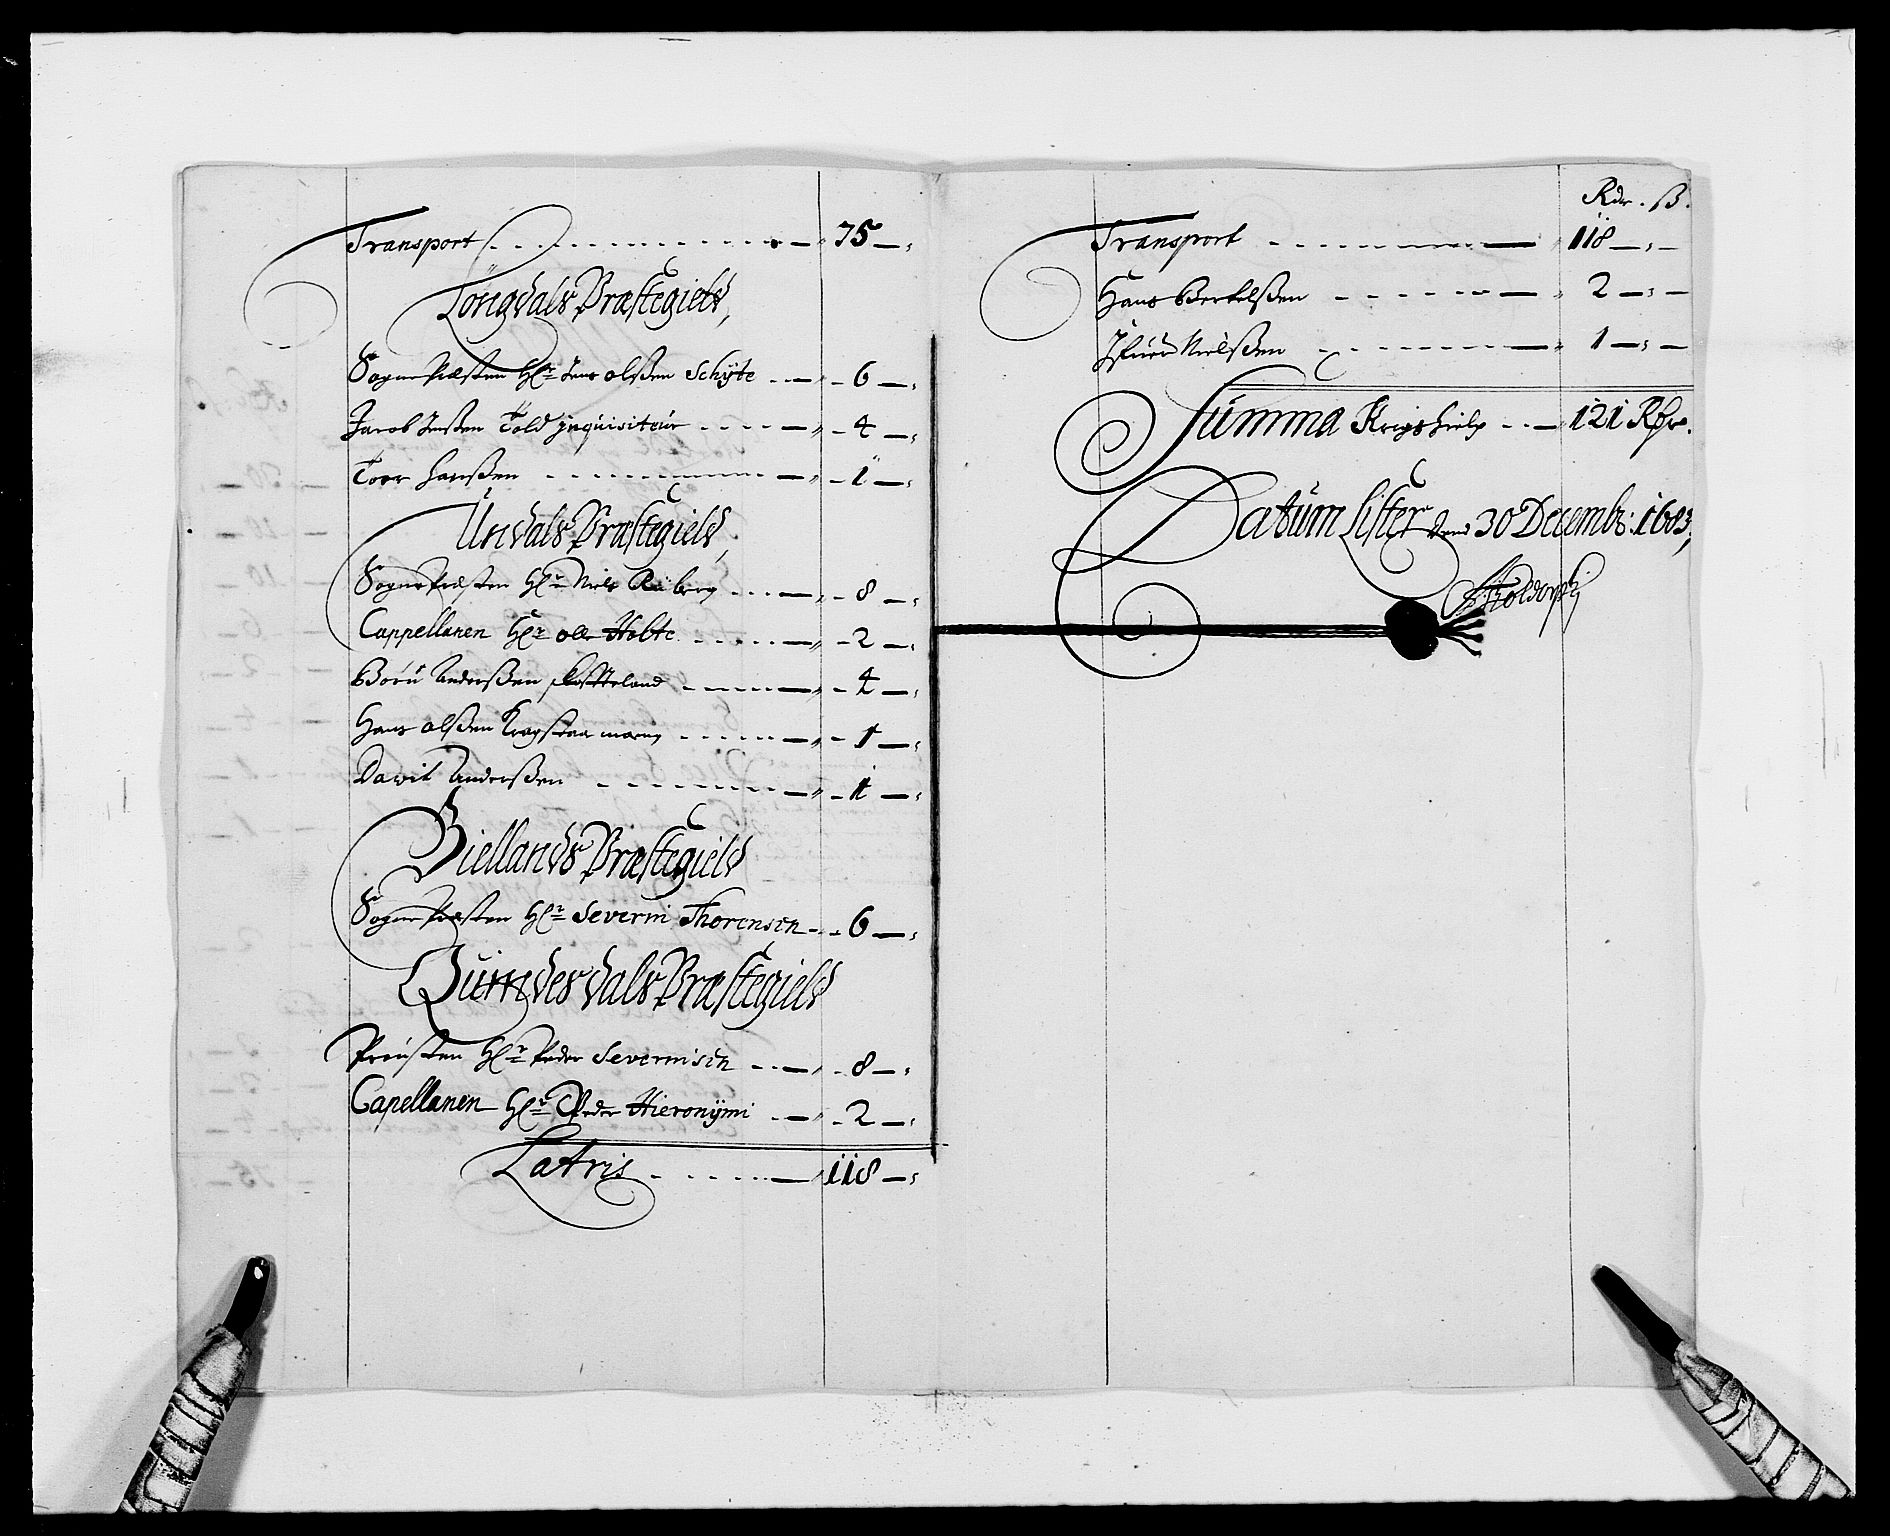 Transport - - - 75 -
Lÿngdals Præstegield,
Sognepræsten Hr Jens olßen Schÿte - - 6 -
Jacob Jenßen Told jnquisiteur - - - 4 -
Toer Hanßen - - - 1 -
Undals Præstegield,
Sognepræsten Hr Niels Raaberg - - - 8 -
Cappellanen Hr olle Holte - - - 2 -
Børu Anderßen - - - 4 -
Hans olßen - - - 1 -
David Anderßen - - - 1 -
Biellands Præstegield
Sognepræsten Hr Severin Thorensen - - 6 -
Quindesdals Præstegield
Proüsten Hr Peder Severinsen - - - 8 -
Capellanen Hr Peder Hieronÿmi - - 2 -
Latris - - - 118 -
Rdr. ß.
Transport - - - 118 - -
Hans Bertelßen - - - 2 - -
Nielßen - - - 1 - -
Summa Krigshielp - - - 121 Rdr.
Datum Lister dend 30 Decembr: 1683,